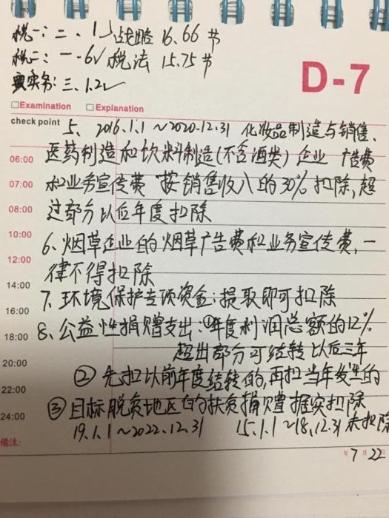 税一:二、1 战略 16.66节
税二:一~6 税法 15.75节
实务:三、1.2
D-7
Examination Explanation
check point
5、2016.1.1~2020.12.31 化妆品制造与销售、
医药制造和饮料制造(不含酒类)企业 广告费
06:00
和业务宣传费 按销售收入的30%扣除,超
07:00
过部分以后年度扣除
08:00
09:00
6、烟草企业的烟草广告费和业务宣传费,一
10:00
律不得扣除
12:00
7、环境保护专项资金:提取即可扣除
14:00
16:00
8、公益性捐赠支出:①年度利润总额的12%
18:00
超出部分可结转以后三年
20:00
②先扣以前年度结转的,再扣当年发生的
22:00
③目标脱贫地区的扶贫捐赠据实扣除
24:00
19.1.1~2022.12.31 15.1.1~18.12.31未扣除
备注:
7月22